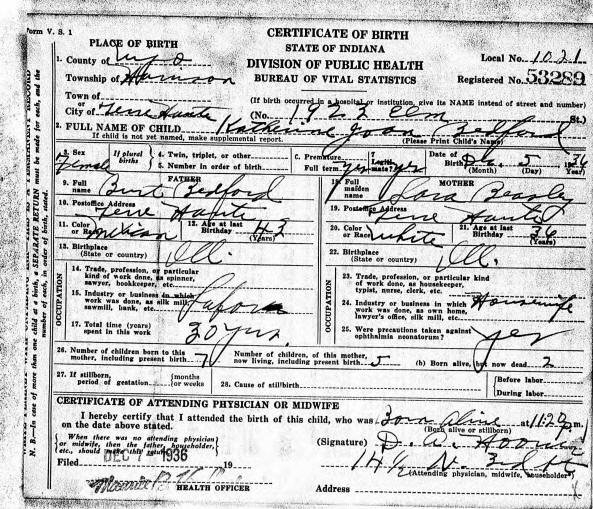 Form V. S. 1
CERTIFICATE OF BIRTH
PLACE OF BIRTH
STATE OF INDIANA
1. County of Vigo
DIVISION OF PUBLIC HEALTH
Local No. 1021
Township of Harrison
BUREAU OF VITAL STATISTICS
Registered No. 53289
Town of
or
(If birth occurred in a hospital or institution, give its NAME instead of street and number)
City of Terre Haute (No. Elm St.)
2. FULL NAME OF CHILD Katherine Joan Bedford
If child is not yet named, make supplemental report. (Please Print Child's Name)
3. Sex Female
If plural births
4. Twin, triplet, or other
5. Number in order of birth
6. Premature
Full term yes
7. Legitimate? yes
8. Date of Birth Dec. 5 1936
(Month) (Day) (Year)
FATHER
9. Full name Burt Bedford
10. Postoffice Address Terre Haute
11. Color or Race
12. Age at last Birthday 43 (Years)
13. Birthplace (State or country) Ill.
OCCUPATION
14. Trade, profession, or particular kind of work done, as spinner, sawyer, bookkeeper, etc.
15. Industry or business in which work was done, as silk mill, sawmill, bank, etc. Labor
17. Total time (years) spent in this work 30 yrs.
MOTHER
18. Full maiden name Beasley
19. Postoffice Address Terre Haute
20. Color or Race White
21. Age at last Birthday 36 (Years)
22. Birthplace (State or country) Ill.
OCCUPATION
23. Trade, profession, or particular kind of work done, as housekeeper, typist, nurse, clerk, etc.
24. Industry or business in which work was done, as own home, lawyer's office, silk mill, etc. Housewife
25. Were precautions taken against ophthalmia neonatorum? yes
26. Number of children born to this mother, including present birth 7 Number of children, of this mother, now living, including present birth 5 (b) Born alive, but now dead 2
27. If stillborn, period of gestation {months or weeks
28. Cause of stillbirth {Before labor
During labor
CERTIFICATE OF ATTENDING PHYSICIAN OR MIDWIFE
I hereby certify that I attended the birth of this child, who was Born Alive at 11:20 P.m.
on the date above stated. (Born alive or stillborn)
When there was no attending physician or midwife, then the father, householder, etc., should make this return.
(Signature) D. A.
DEC 7 1936
Filed 19
14½ N. 3rd St
(Attending physician, midwife, householder)
HEALTH OFFICER
Address
N. B.—In case of more than one child at a birth, a SEPARATE RETURN must be made for each, and the number of each, in order of birth, stated.